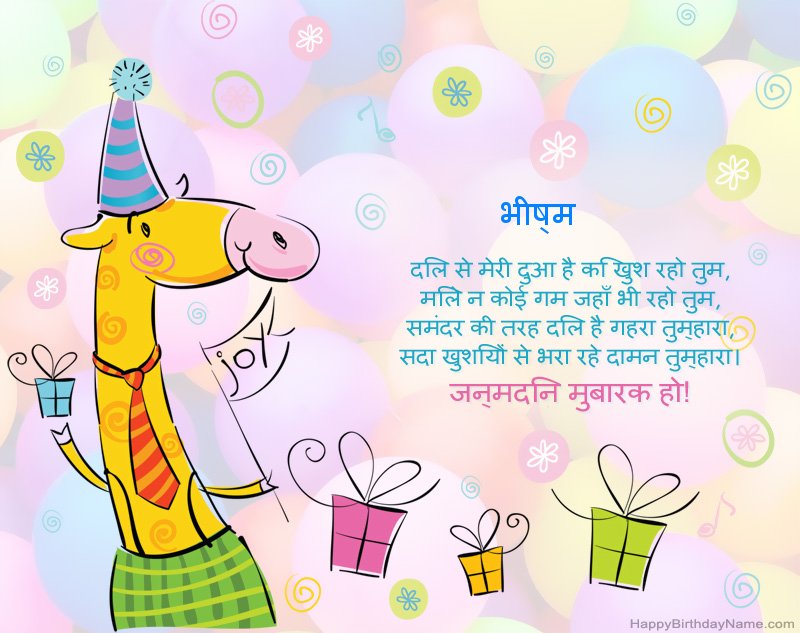 भीष्म
दिल से मेरी दुआ है कि खुश रहो तुम,
मिले न कोई गम जहाँ भी रहो तुम,
समंदर की तरह दिल है गहरा तुम्हारा,
सदा खुशियों से भरा रहे दामन तुम्हारा।
जन्मदिन मुबारक हो!
joy
HappyBirthdayName.com